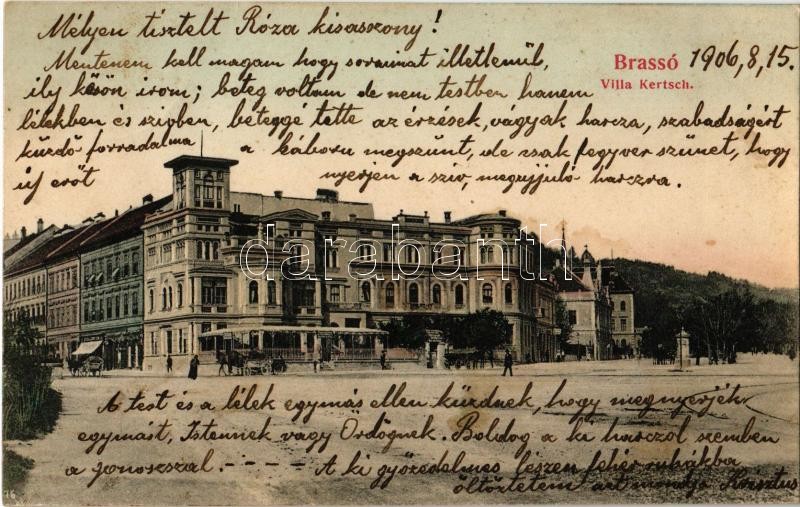 Mélyen tisztelt Róza kisasszony!
Brassó 1906,8,15.
Villa Kertsch.
Mentenem kell magam hogy soraimat illetlenül,
ily későn irom; beteg voltam de nem testben hanem
lélekben és szivben, beteggé tette az érzések, vágyak harcza, szabadságért
küzdő forradalma a háboru megszünt, de csak fegyver szünet, hogy
uj erőt nyerjen a sziv, megujjuló harczra.
darabanth
A test és a lélek egymás ellen küzdnek, hogy megnyerjék
egymást, Istennek vagy Ördögnek. Boldog a ki harczol szemben
a gonoszszal. - - - - - A ki győzedelmes lészen fehér ruhákba
öltöztetem azt mondja Krisztus
16